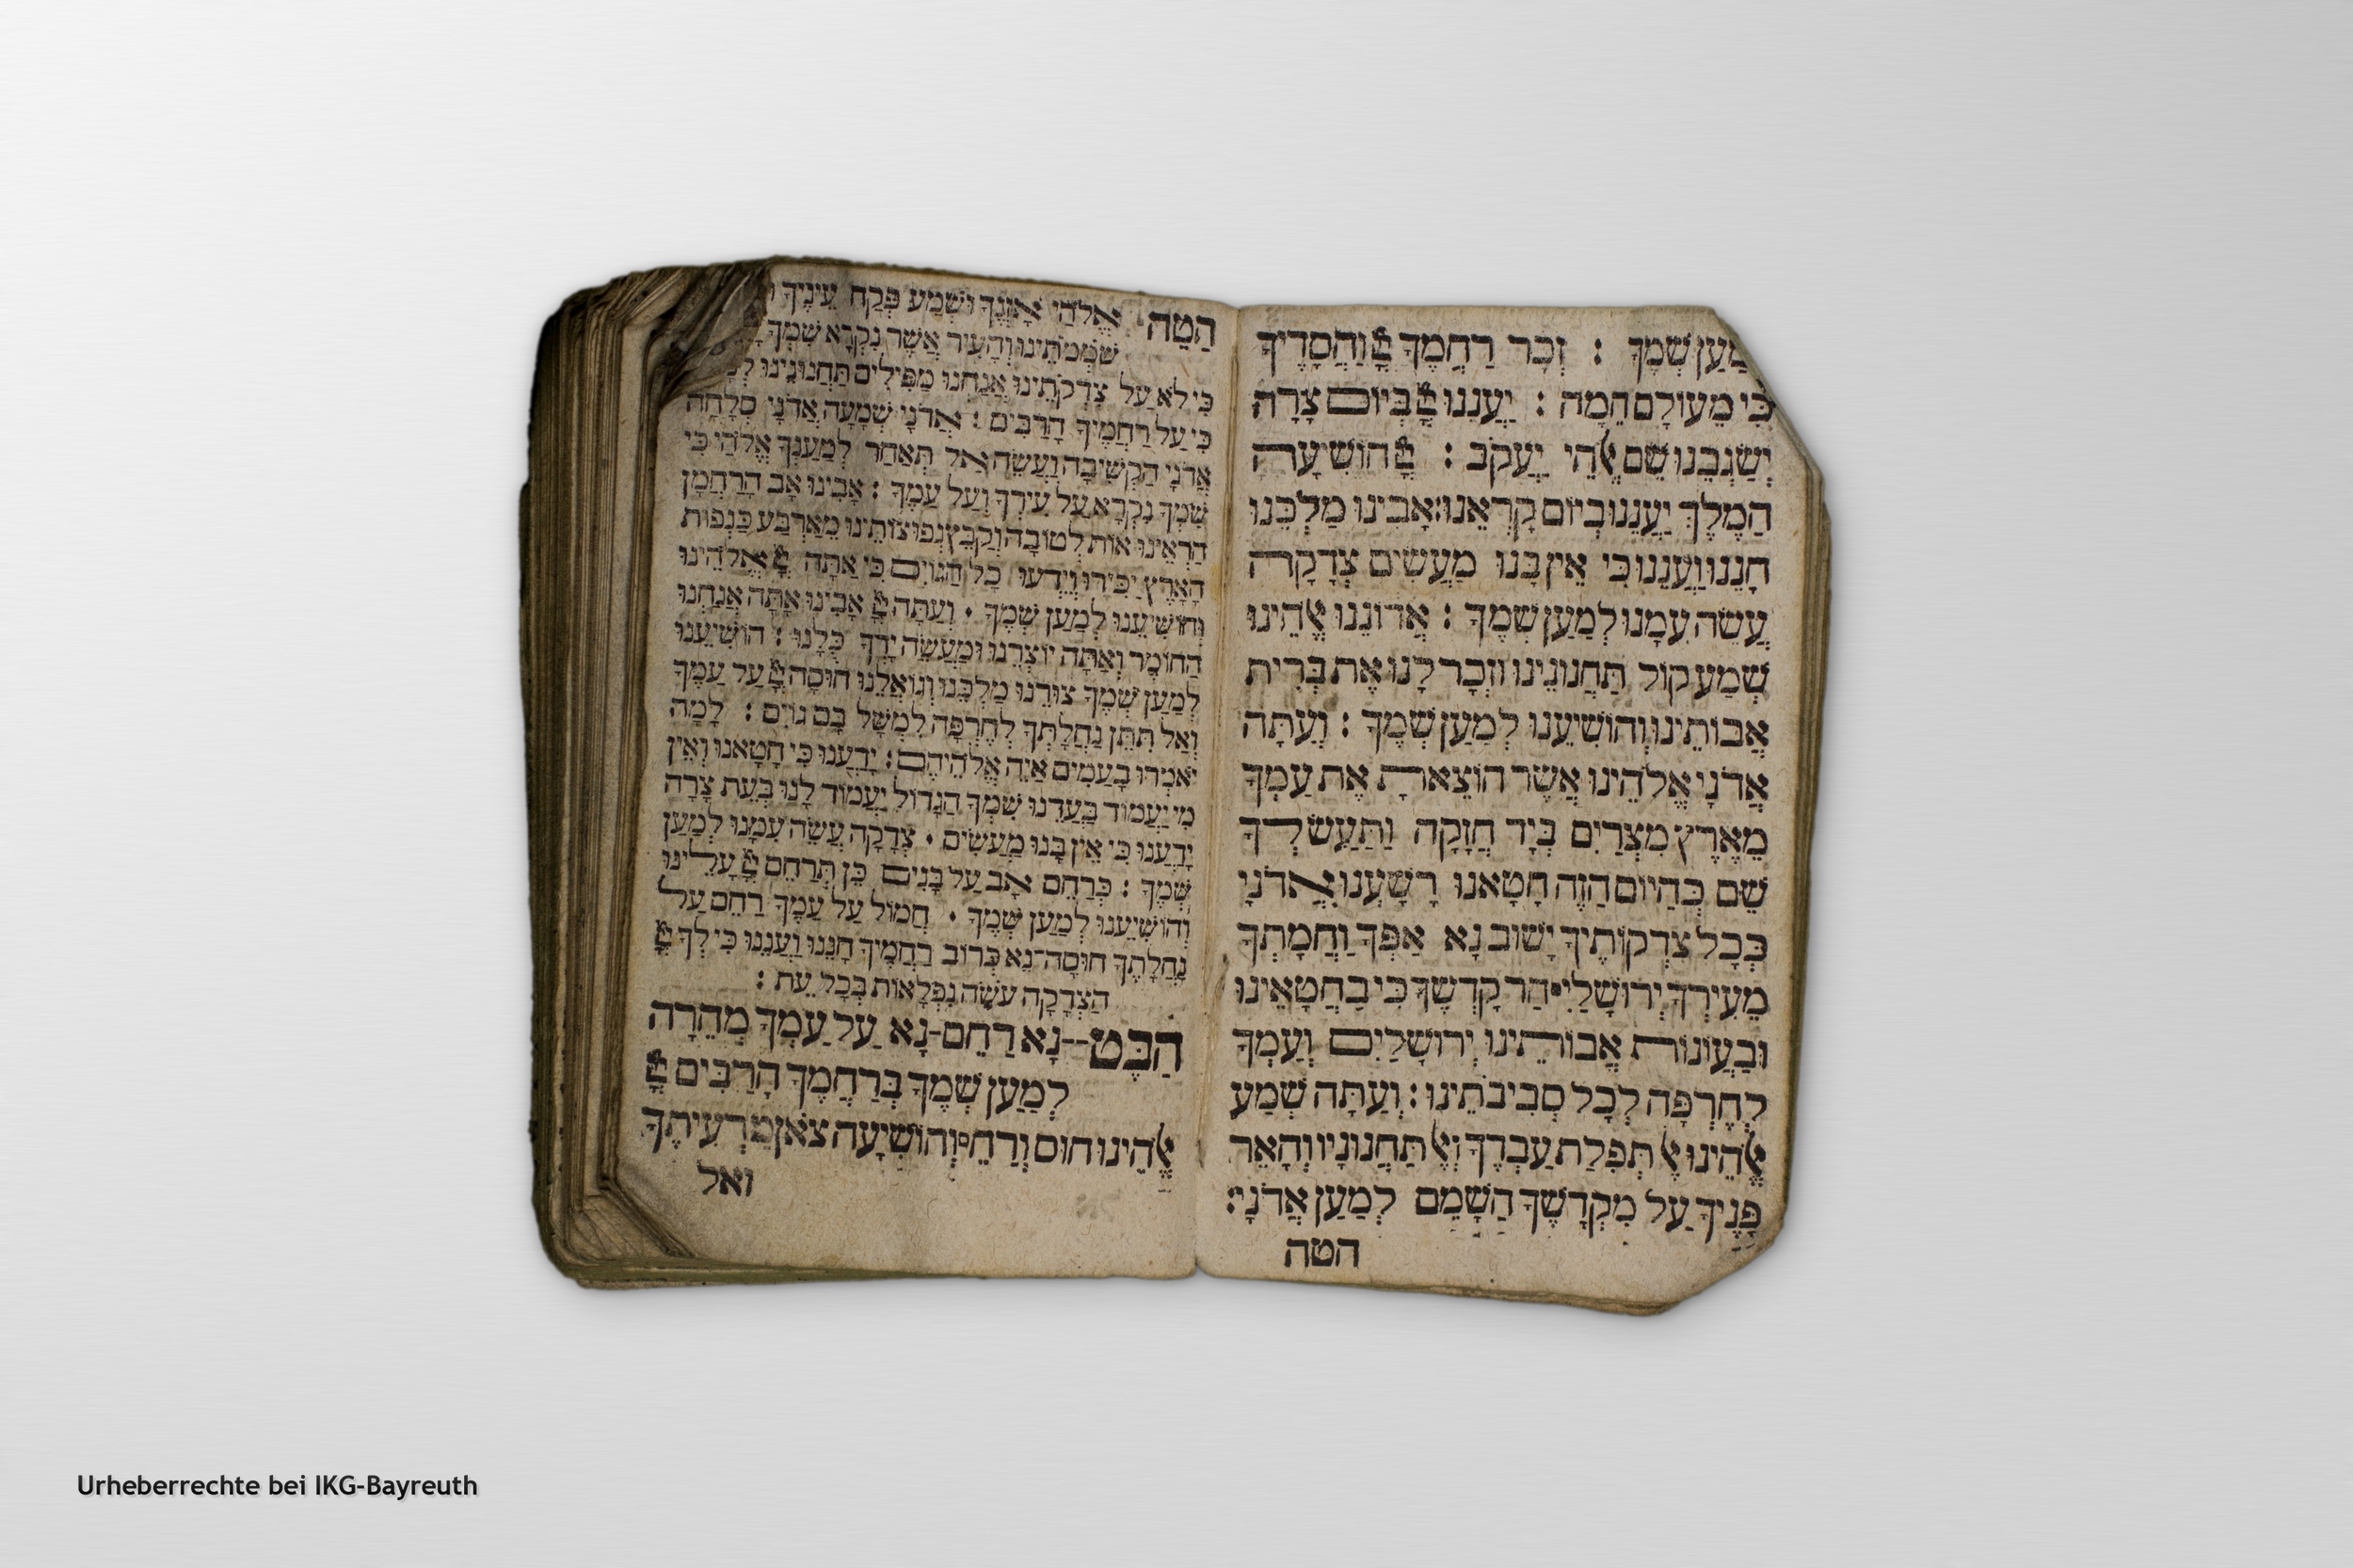 למען שמך : זכר רחמיך יי וחסדיך
כי מעולם המה : יעננו יי ביום צרה
ישגבנו שם אלהי יעקב : יי הושיעה
המלך יעננו ביום קראנו : אבינו מלכנו
חננו ועננו כי אין בנו מעשים צדקה
עשה עמנו למען שמך : אדוננו אלהינו
שמע קול תחנונינו וזכר לנו את ברית
אבותינו והושיענו למען שמך : ועתה
אדני אלהינו אשר הוצאת את עמך
מארץ מצרים ביד חזקה ותעש לך
שם כהיום הזה חטאנו רשענו : אדני
בכל צדקותיך ישוב נא אפך וחמתך
מעירך ירושלי׳ הר קדשך כי בחטאינו
ובעונות אבותינו ירושלים ועמך
לחרפה לכל סביבתינו : ועתה שמע
אלהינו אל תפלת עבדך ואל תחנוניו והאר
פניך על מקדשך השמם למען אדני :
הטה
הטה אלהי אזנך ושמע פקח עיניך
שממתינו והעיר אשר נקרא שמך
כי לא על צדקתינו אנחנו מפילים תחנונינו
כי על רחמיך הרבים : אדני שמעה אדני סלחה
אדני הקשיבה ועשה אל תאחר למענך אלהי כי
שמך נקרא על עירך ועל עמך : אבינו אב הרחמן
הראינו אות לטובה וקבץ נפוצותינו מארבע כנפות
הארץ יכירו וידעו כל הגוים כי אתה יי אלהינו
והושיענו למען שמך · ועתה יי אבינו אתה אנחנו
החומר ואתה יוצרנו ומעשה ידך כלנו : הושיענו
למען שמך צורנו מלכנו וגואלנו חוסה יי על עמך
ואל תתן נחלתך לחרפה למשל בם גוים : למה
יאמרו בעמים איה אלהיהם : ידענו כי חטאנו ואין
מי יעמוד בעדנו שמך הגדול יעמוד לנו בעת צרה
ידענו כי אין בנו מעשים · צדקה עשה עמנו למען
שמך : כרחם אב על בנים כן תרחם יי עלינו
והושיענו למען שמך · חמול על עמך רחם על
נחלתך חוסה־נא כרוב רחמיך חננו ועננו כי לך יי
הצדקה עשה נפלאות בכל עת :
הבט--נא רחם-נא על עמך מהרה
למען שמך ברחמך הרבים יי
אלהינו חוס ורח׳ והושיעה צאן מרעיתך
ואל
Urheberrechte bei IKG-Bayreuth